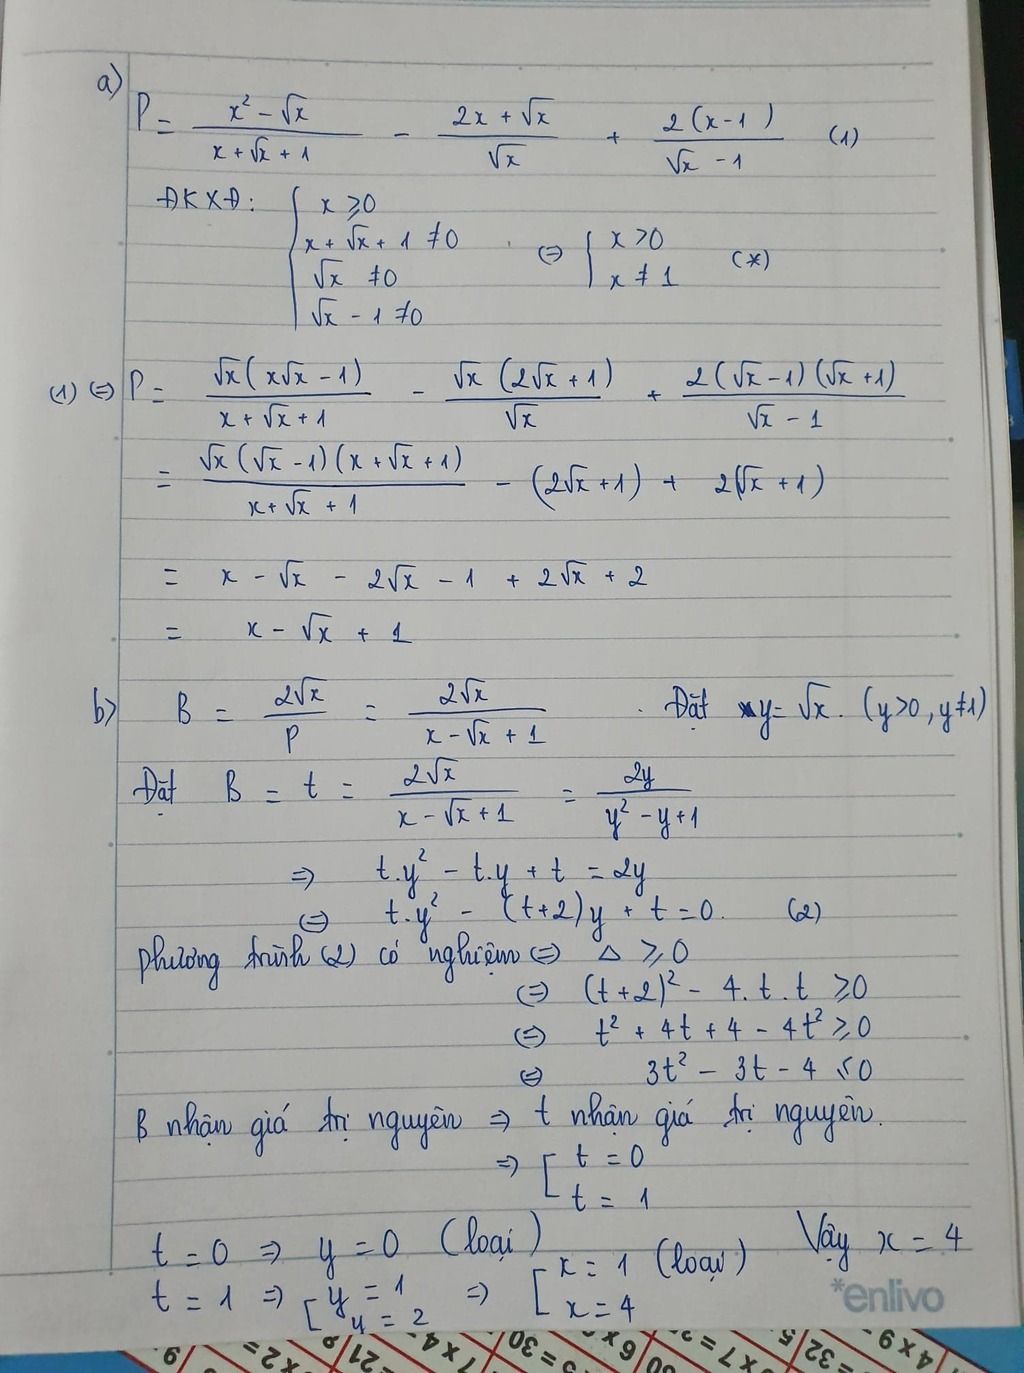 a)
P = (x² - √x)/(x + √x + 1) - (2x + √x)/√x + 2(x-1)/(√x - 1) (1)
ĐKXĐ: { x ≥ 0
x + √x + 1 ≠ 0
√x ≠ 0
√x - 1 ≠ 0
⇔ { x > 0
x ≠ 1 (*)
(1) ⇔ P = √x(x√x - 1)/(x + √x + 1) - √x(2√x + 1)/√x + 2(√x - 1)(√x + 1)/(√x - 1)
= √x(√x - 1)(x + √x + 1)/(x + √x + 1) - (2√x + 1) + 2(√x + 1)
= x - √x - 2√x - 1 + 2√x + 2
= x - √x + 1
b) B = 2√x/P = 2√x/(x - √x + 1) . Đặt y = √x. (y>0, y≠1)
Đặt B = t = 2√x/(x - √x + 1) = 2y/(y² - y + 1)
⇒ t.y² - t.y + t = 2y
⇔ t.y² - (t+2)y + t = 0. (2)
phương trình (2) có nghiệm ⇔ Δ ≥ 0
⇔ (t+2)² - 4.t.t ≥ 0
⇔ t² + 4t + 4 - 4t² ≥ 0
⇔ 3t² - 3t - 4 ≤ 0
B nhận giá trị nguyên ⇒ t nhận giá trị nguyên.
⇒ [ t = 0
t = 1
t = 0 ⇒ y = 0 (loại)
t = 1 ⇒ [ y = 1
y = 2
⇒ [ x = 1 (loại)
x = 4
Vậy x = 4
*enlivo